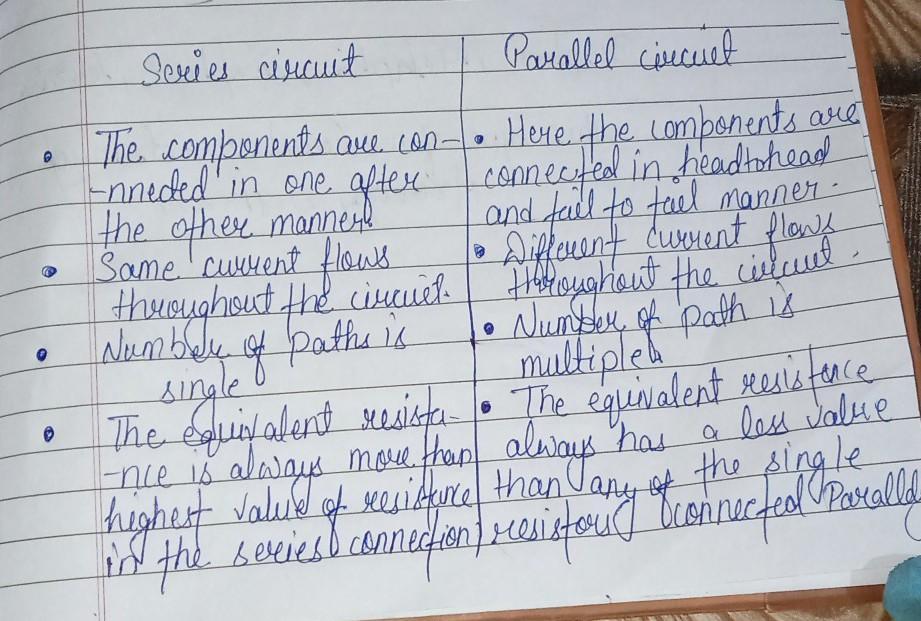 Series circuit
The components are con-
-nnected in one after
the other manner.
Same current flows
throughout the circuit.
Number of paths is
single
The equivalent resista-
-nce is always more than
highest value of resistance
in the series connection
Parallel circuit
Here the components are
connected in headtohead
and tail to tail manner.
Different current flows
throughout the circuit.
Number of path is
multiple
The equivalent resistance
always has a less value
than any of the single
resistors connected Parallel